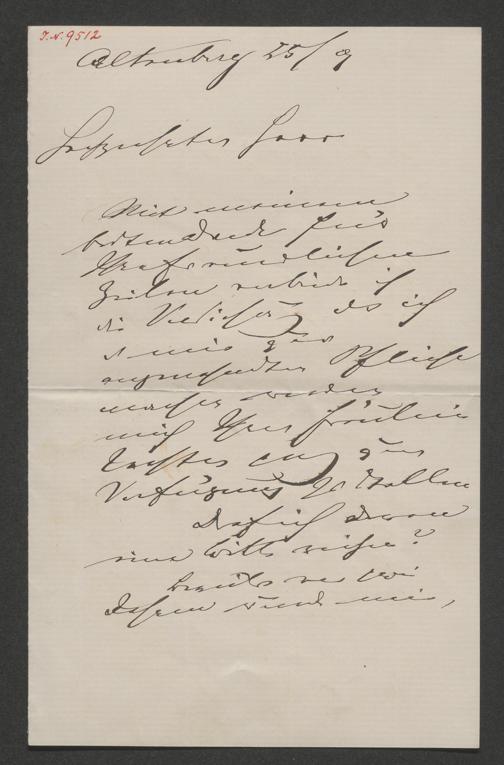 I.N. 9512
Altenberg 25/9
Hochgeehrter Herr
Mit meinem
besten Danke für
Ihre freundlichen
Zeilen verbinde ich
die Versicherung das ich
es mir zur
angenehmsten Pflicht
machen werde
mich Ihrer Fräulein
Tochter ganz zur
Verfügung zu stellen
Darf ich daran
eine Bitte reihen?
Bereits vor zwei
Jahren sind mir,